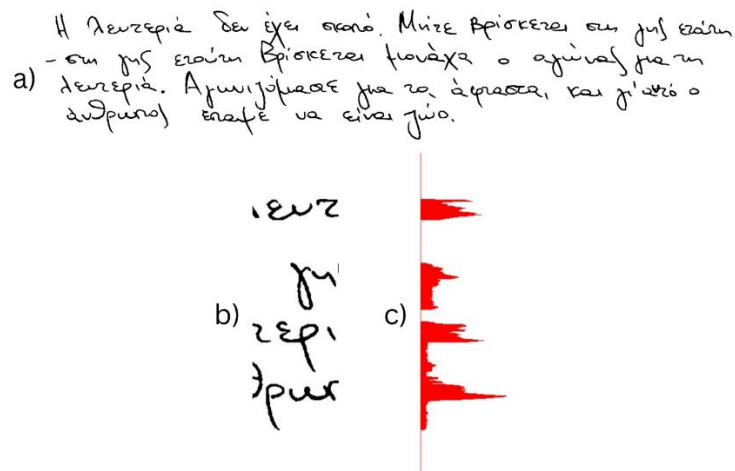 Η λευτεριά δεν έχει σκοπό. Μήτε βρίσκεται στη γης ετούτη
- στη γης ετούτη βρίσκεται μονάχα ο αγώνας για τη
a) λευτεριά. Αγωνιζόμαστε για τα άφταστα, και γι' αυτό ο
άνθρωπος έπαψε να είναι ζώο.
ευτ
γη
b) τερι c)
θρωπ